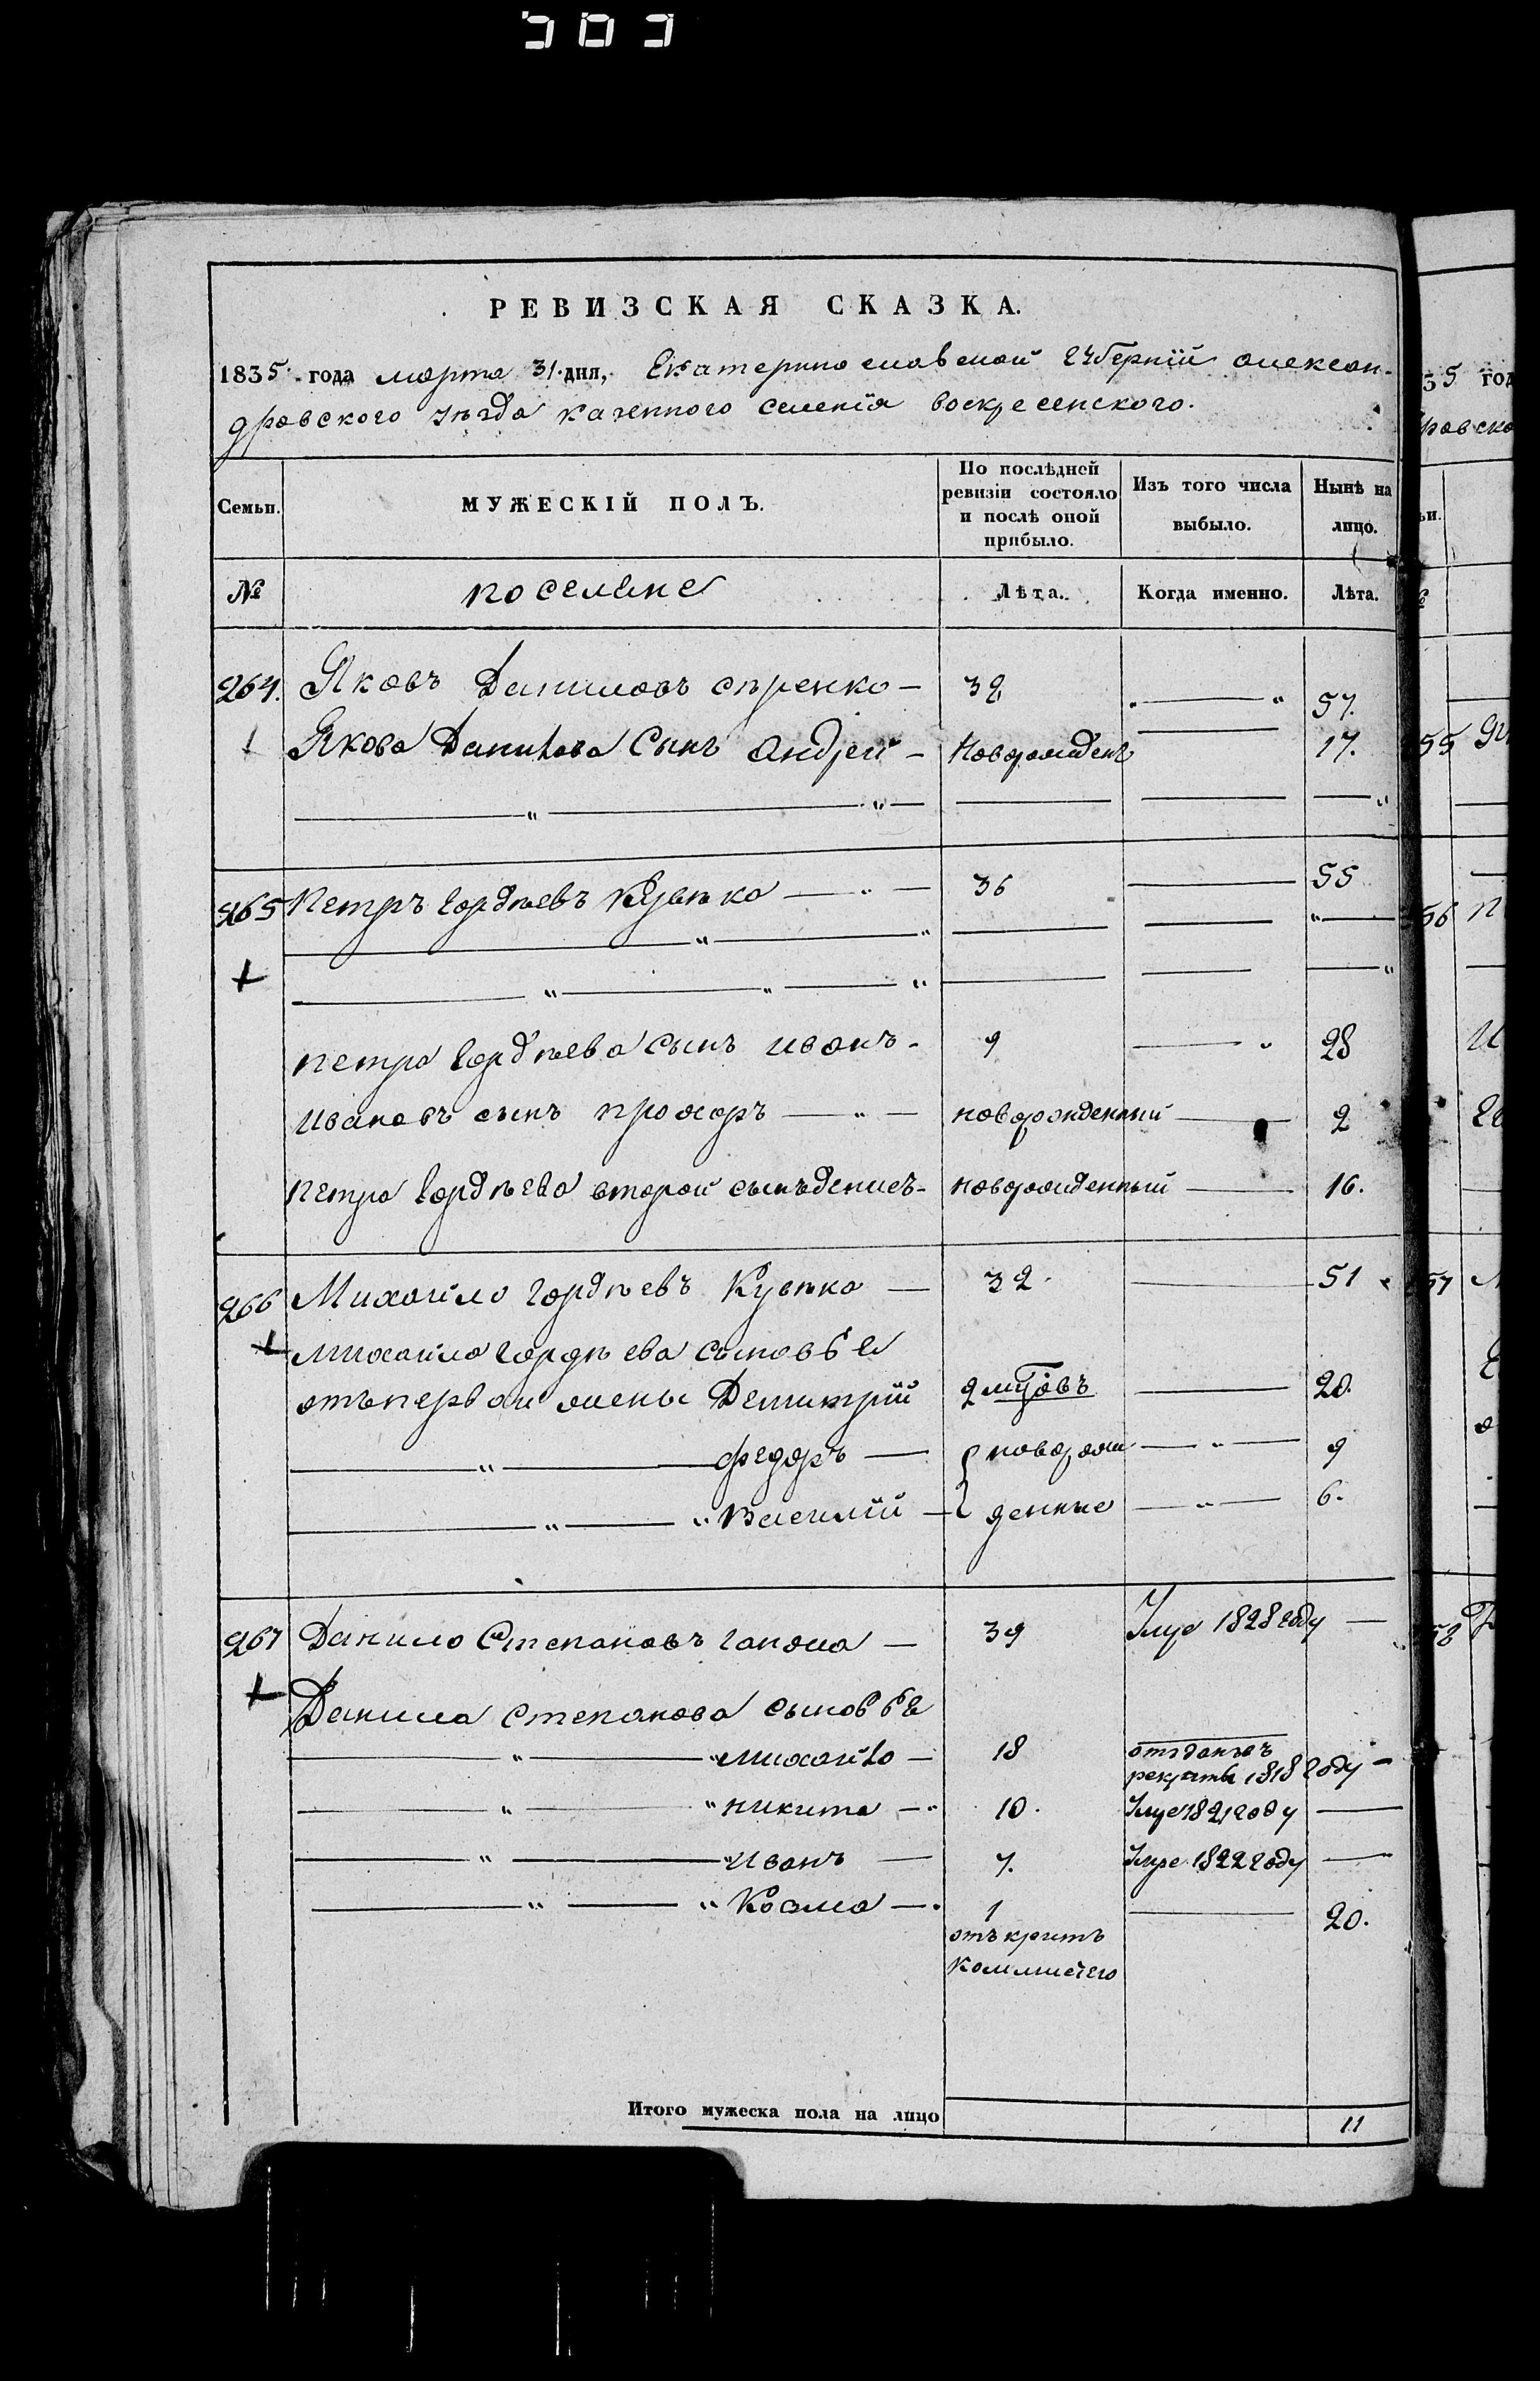 РЕВИЗСКАЯ СКАЗКА.
1835 года марта 31 дня, Екатеринославской Губернїй олексан-
дровского уѣзда казенного селенїя воскресенского.
Семьи. МУЖЕСКІЙ ПОЛЪ. По послѣдней ревизіи состояло и послѣ оной прибыло. Изъ того числа выбыло. Нынѣ на лицо.
№ поселяне Лѣта. Когда именно. Лѣта.
264. Яковъ Даниловъ сѣренко — 38 57.
Якова Данилова Сынъ Андреи — Новорожденъ 17.
265 Петръ Гордѣевъ Кувѣко — 36 55
Петра Гордѣева сынъ иванъ - 9 28
ивановъ сынъ прохоръ — новорожденный 2
Петра Гордѣева второй сынъ денисъ - новорожденный 16.
266 Михайло Гордѣевъ Кувѣко — 32 51
михайла гордѣева сыновья
отъ первои жены Демитрїй 20.
федоръ — новорож 9
Василїй — денные 6.
267 Данило Степановъ гапона — 39 Умре 1828 году —
Данила Степанова сыновья
михайло — 18 отъданъ въ
рекруты 1818 году —
никита — 10. Умре 1821 году —
Иванъ — 7. Умре 1822 году —
Козма — 1 20.
Итого мужеска пола на лицо 11
35 год